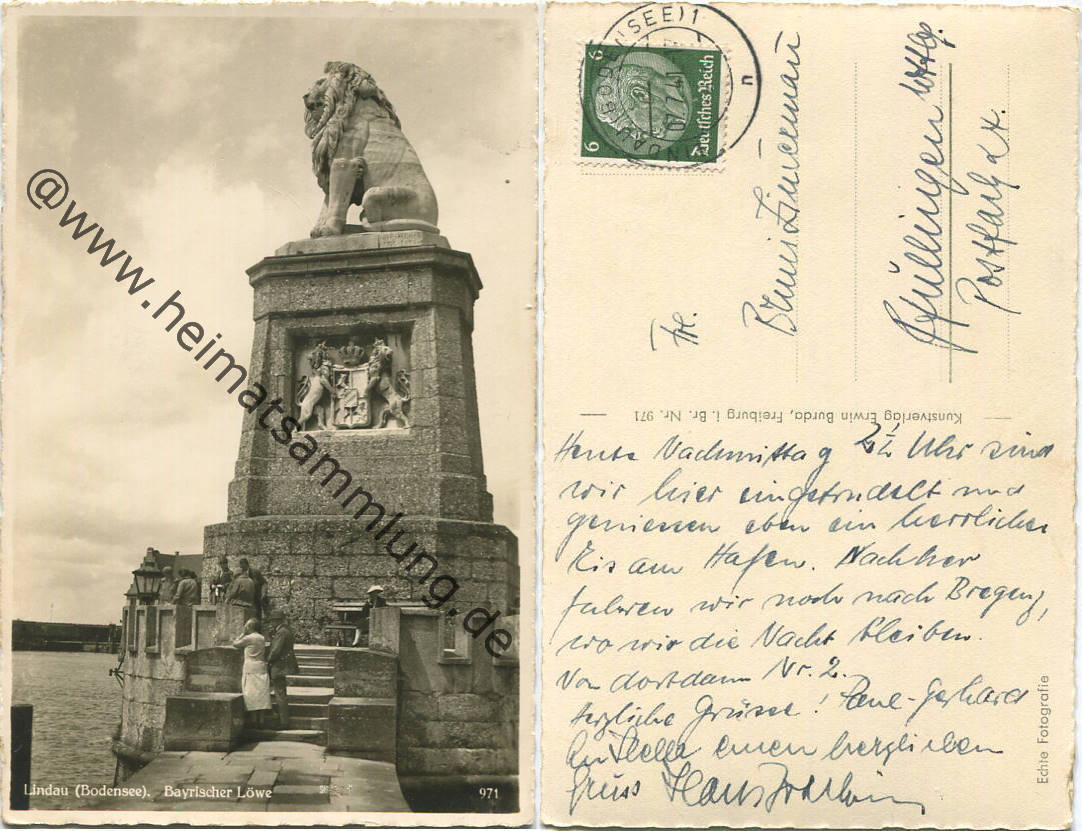 @www.heimatsammlung.de
Lindau (Bodensee). Bayrischer Löwe
971
(BODENSEE) 1
6 6
Deutsches Reich
Kunstverlag Erwin Burda, Freiburg i. Br. Nr. 971
Postfach
Heute Nachmittag 2½ Uhr sind
wir hier eingetrudelt und
geniessen eben ein herrliches
Eis am Hafen. Nachher
fahren wir noch nach Bregenz,
wo wir die Nacht bleiben.
Von dort dann Nr. 2.
Herzliche Grüsse! Gerhard
einen herzlichen
Gruss
Echte Fotografie